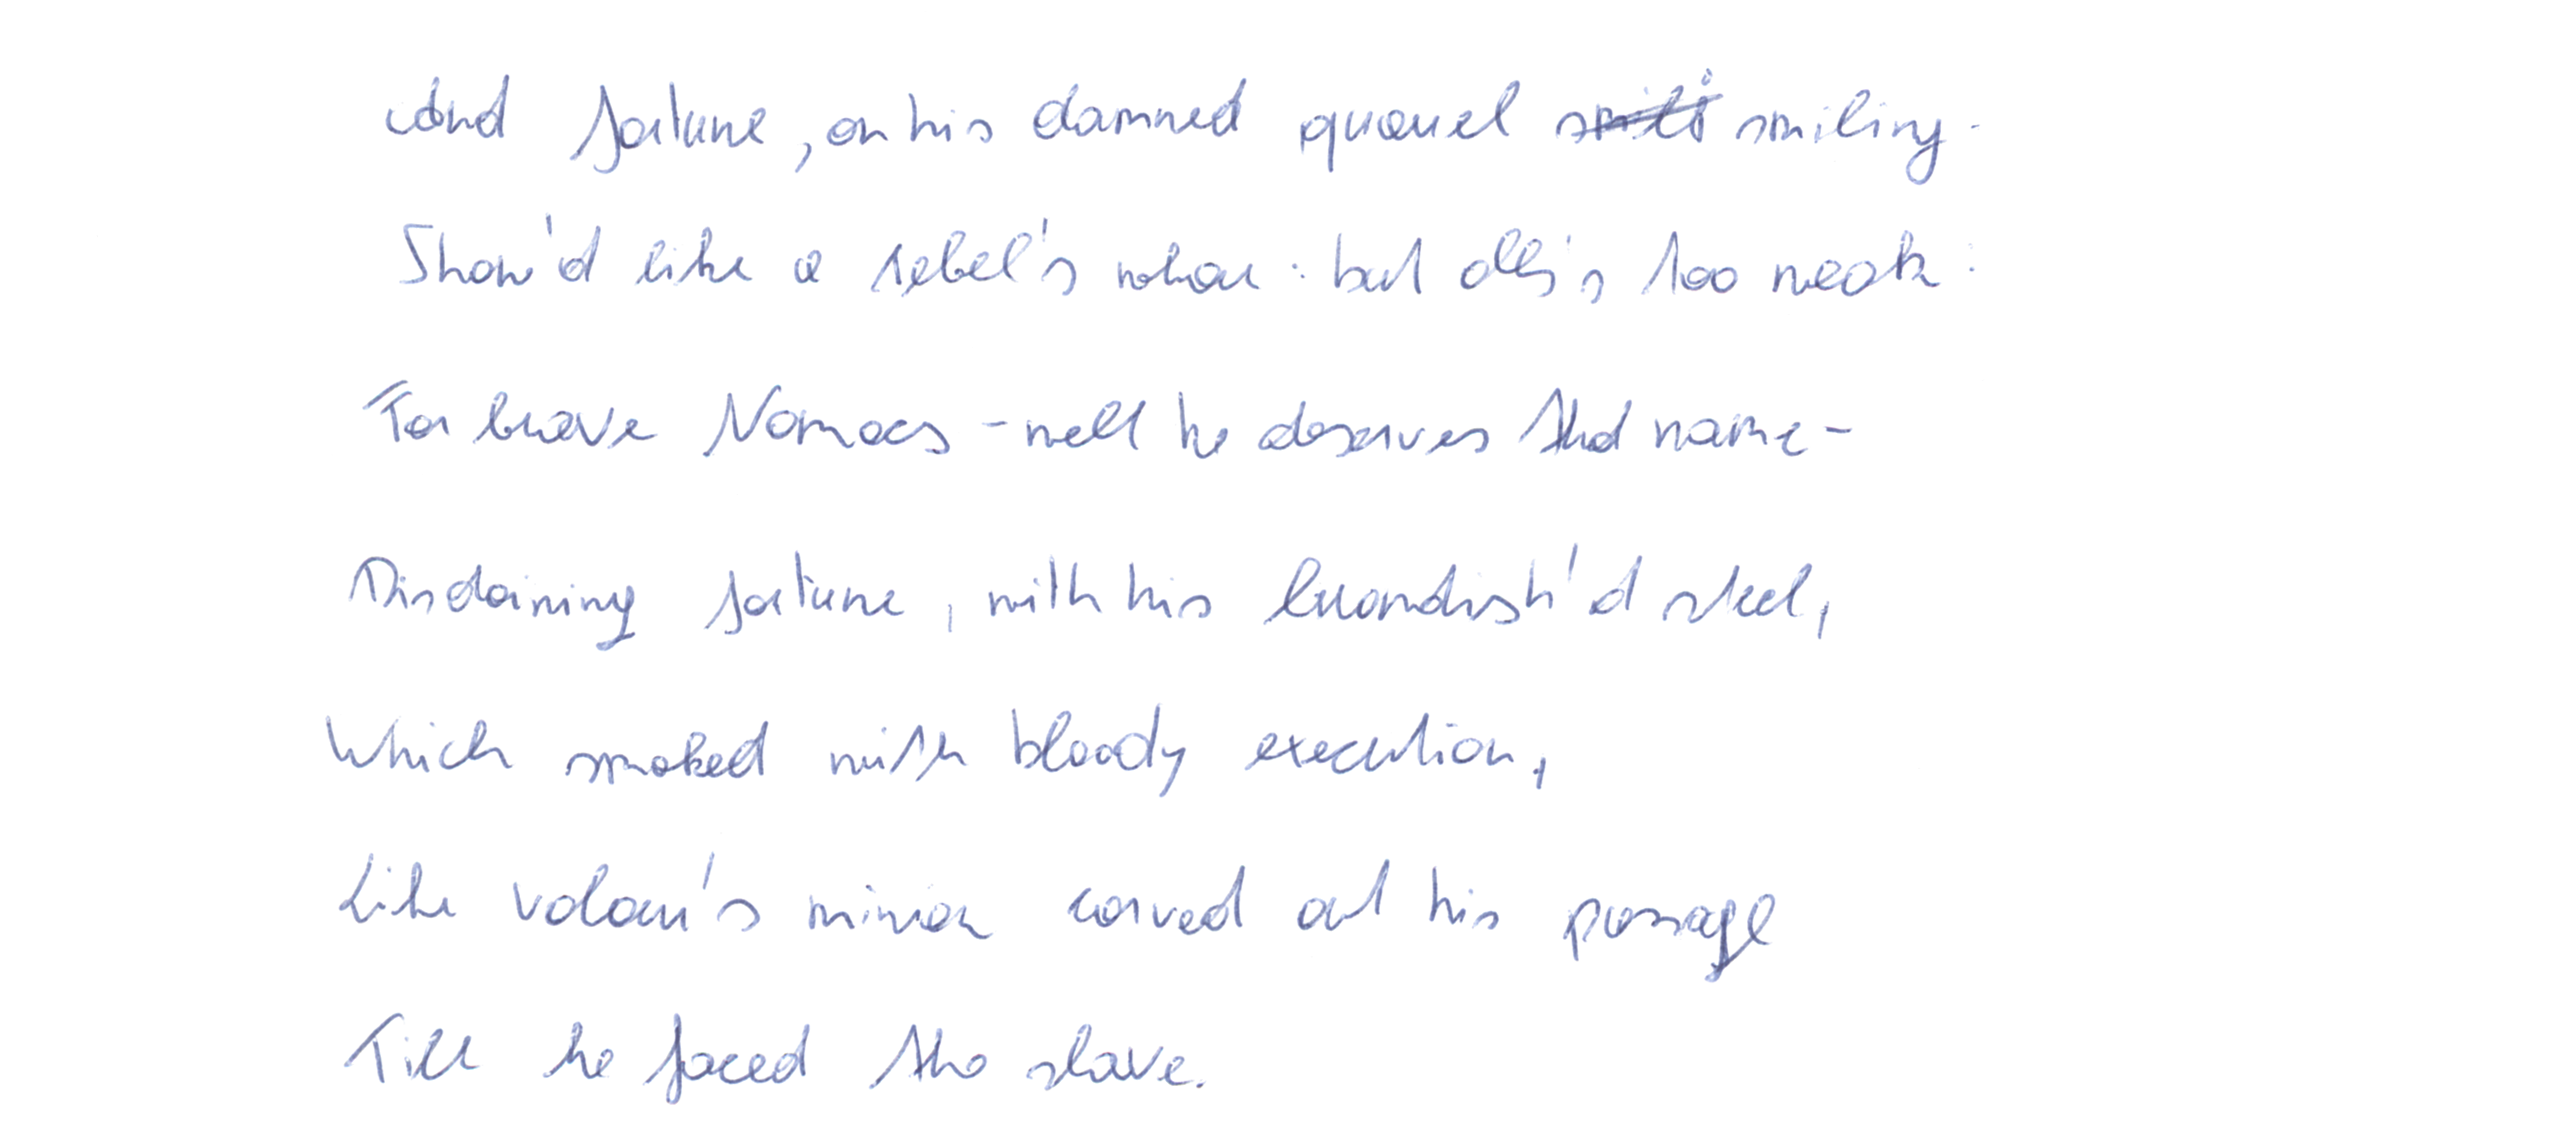 And fortune, on his damned quarrel smiling.
Show'd like a rebel's whore: but all's too weak:
For brave Nomacs - well he deserves that name -
Disdaining fortune, with his brandish'd steel,
Which smoked with bloody execution,
Like valour's minion carved out his passage
Till he faced the slave.